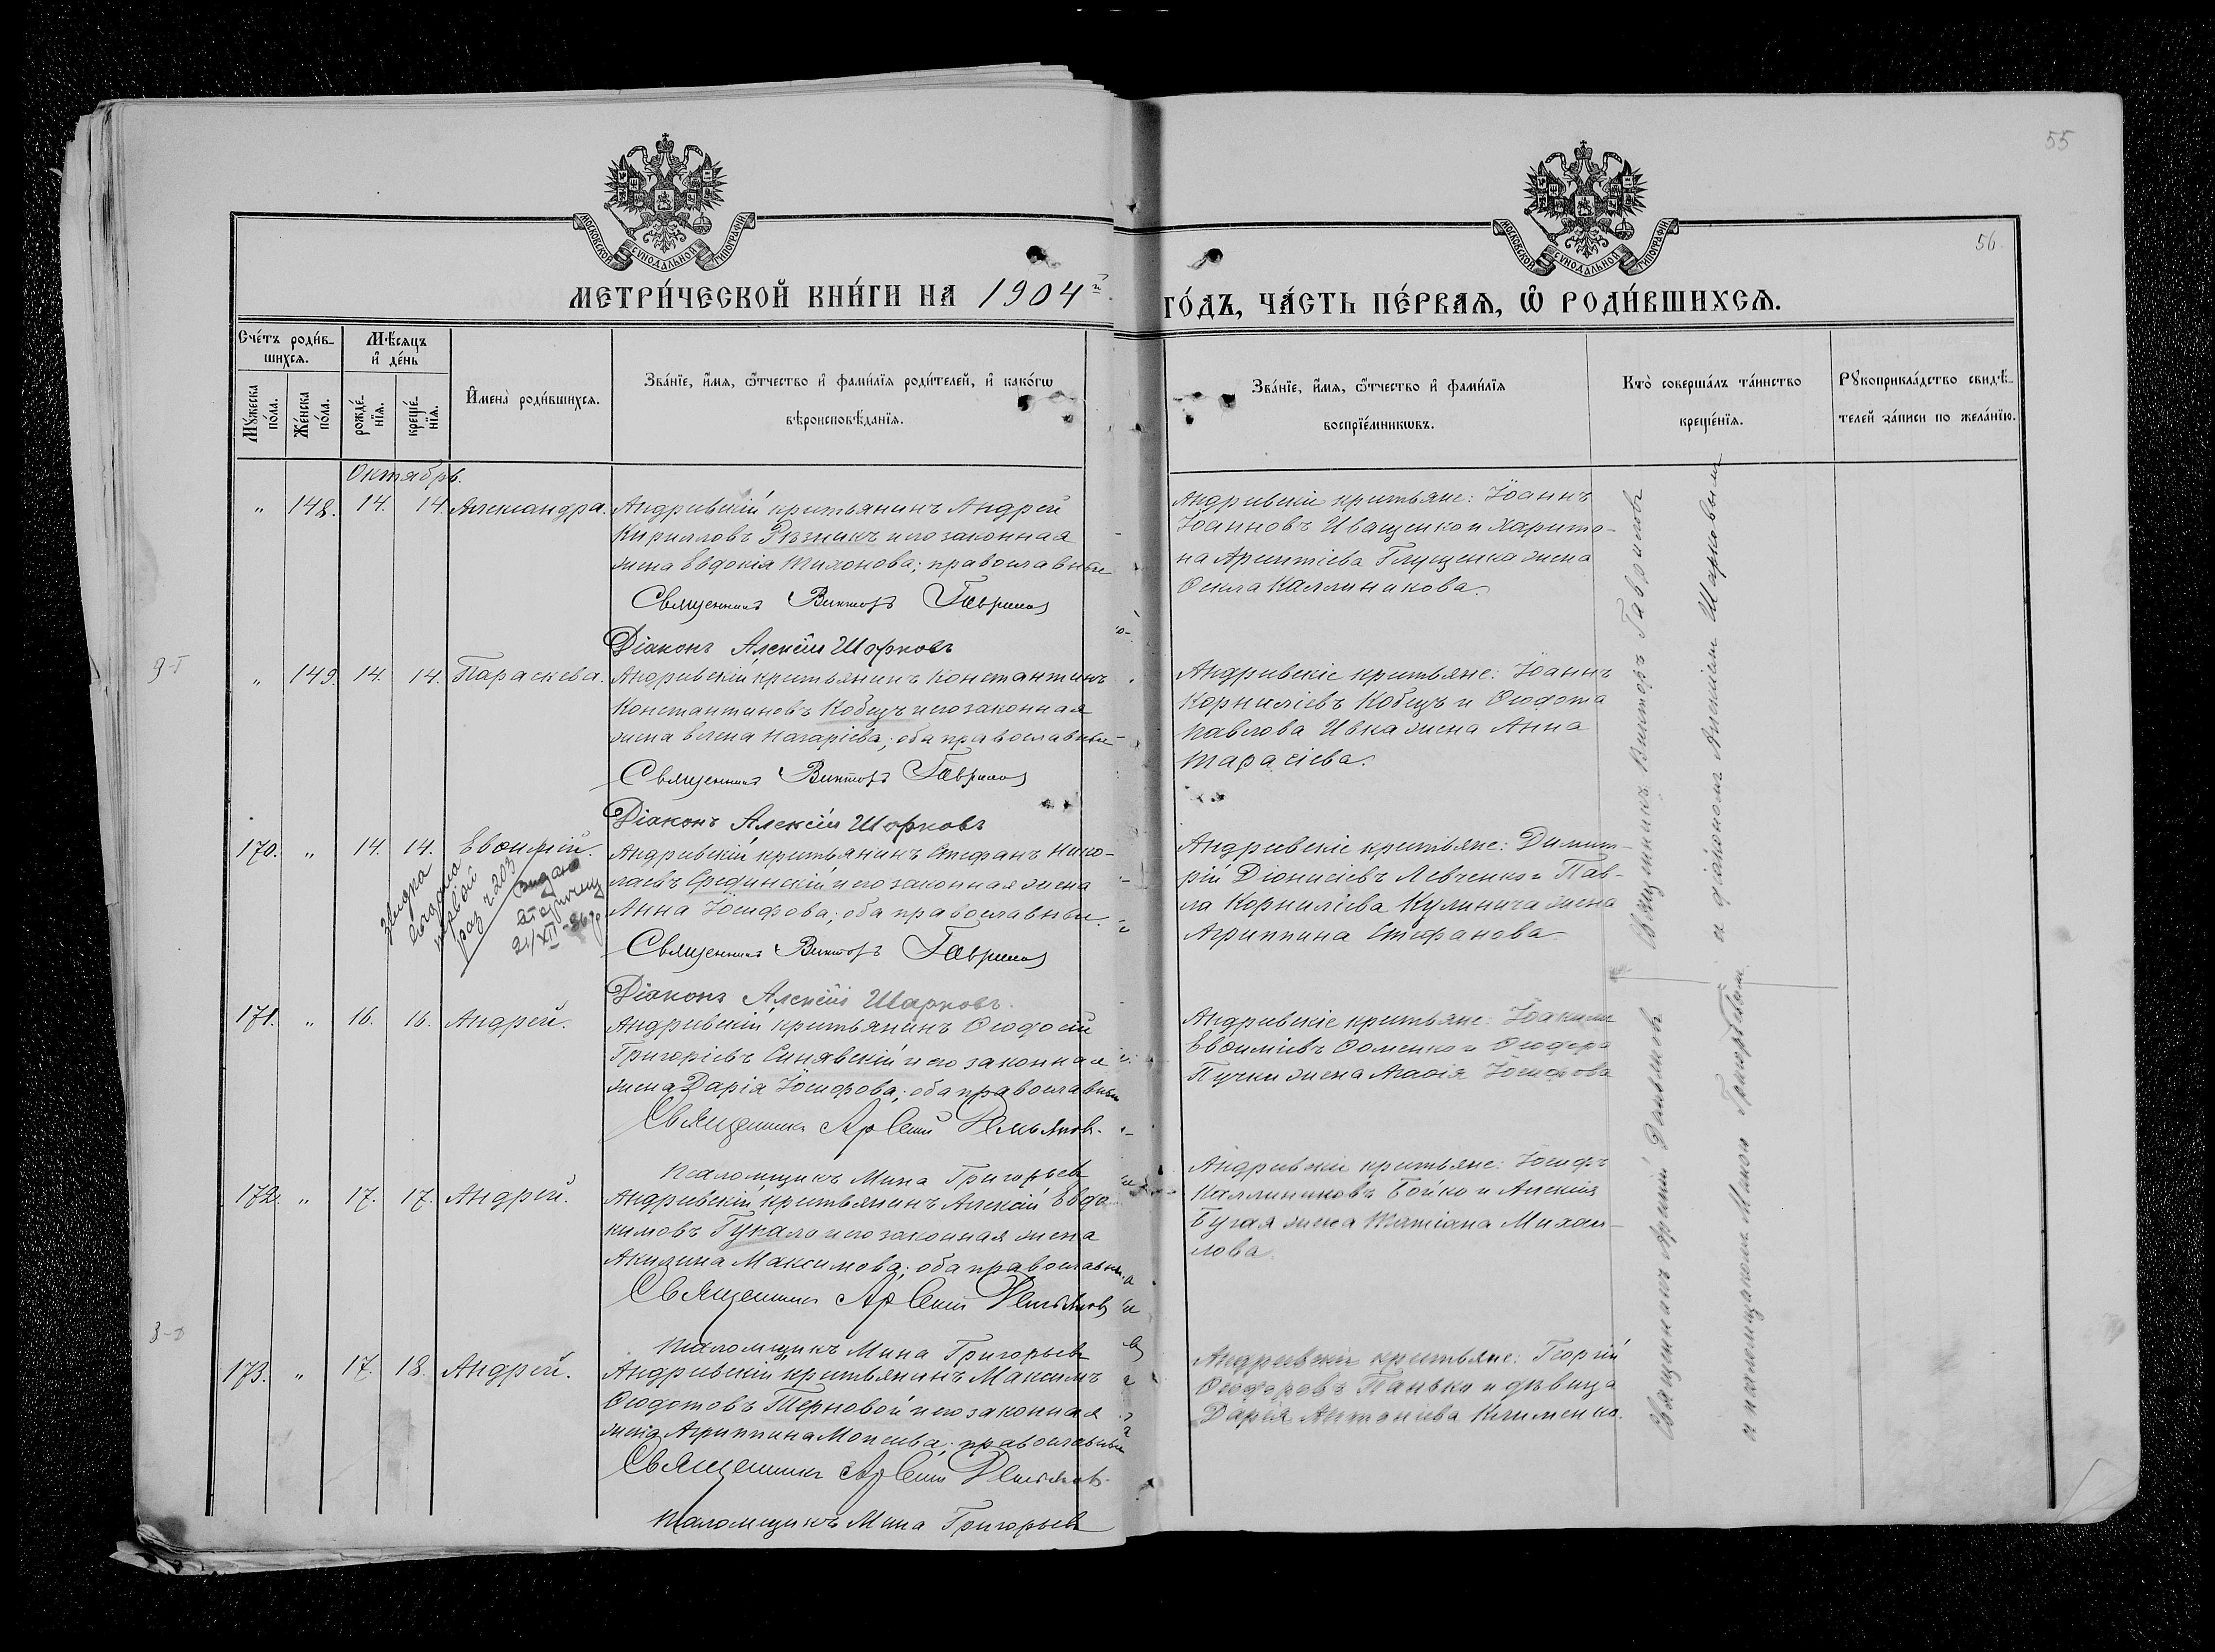 55
МОСКОВСКОЙ СѴНОДАЛЬНОЙ ТИПОГРАФІИ
МОСКОВСКОЙ СѴНОДАЛЬНОЙ ТИПОГРАФІИ
56.
МЕТРИ́ЧЕСКОЙ КНИ́ГИ НА 1904й
ГО́ДЪ, ЧА́СТЬ ПЕ́РВАЯ, Ѽ РОДИ́ВШИХСЯ.
Сче́тъ роди́в-
шихся.
Мѣсяцъ
и҆ де́нь
Мꙋжеска по́ла.
Же́нска по́ла.
рожде́-
нїя.
креще́-
нїя.
И҆мена̀ роди́вшихся.
Зва́нїе, и҆́мя, ѻ҆́тчество и҆ фами́лїя роди́телей, и҆ како́гѡ
вѣроисповѣ́данїя.
Зва́нїе, и҆́мя, ѻ҆́тчество и҆ фами́лїя
воспрїе́мникѡвъ.
Кто̀ соверша́лъ та́инство
креще́нїя.
Рꙋкоприкла́дство свидѣ́-
телей за́писи по жела́нїю.
Октябрь.
" 148. 14. 14. Александра.
Андреевскій крестьянинъ Андрей
Кирилловъ Рѣзникъ и его законная
жена Евдокія Тихонова; православные
Священникъ Викторъ Гавриловъ
Діаконъ Алексій Шарковъ
Андреевскіе крестьяне: Іоаннъ
Іоанновъ Иващенко и Харито-
на Арефтіева Глущенка жена
Ѳекла Каллиникова.
9-Г
" 149. 14. 14. Параскева.
Андреевскій крестьянинъ Константинъ
Константиновъ Кобецъ и его законная
жена Елена Назаріева; оба православные
Священникъ Викторъ Гавриловъ
Діаконъ Алексій Шарковъ
Андреевскіе крестьяне: Іоаннъ
Корниліевъ Кобецъ и Ѳеодота
Павлова Ивка жена Анна
Тарасіева.
170. " 14. 14. Евѳимій.
первой
раз ч 203
видано
21/XII-36 р
Андреевскій крестьянинъ Стефанъ Нико-
лаевъ Срединскій и его законная жена
Анна Іосифова; оба православные.
Священникъ Викторъ Гавриловъ
Діаконъ Алексій Шарковъ.
Андреевскіе крестьяне: Димит-
рій Діонисіевъ Левченко и Пав-
ла Корниліева Кулинича жена
Агриппина Стефанова.
Священникъ Викторъ Гавриловъ
и діакономъ Алексіемъ Шарковымъ
171. " 16. 16. Андрей.
Андреевскій крестьянинъ Ѳеодосій
Григоріевъ Синявскій и его законная
жена Дарія Іосифова; оба православные
Священникъ Арсеній Демьяновъ.
Псаломщикъ Мина Григорьевъ
Андреевскіе крестьяне: Іоакимъ
Евѳиміевъ Ѳоменко и Ѳеодора
Пучки жена Агаѳія Іосифова
172. " 17. 17. Андрей.
Андреевскій крестьянинъ Алексій Евдо-
кимовъ Гукало и его законная жена
Акилина Максимова; оба православные
Священникъ Арсеній Демьяновъ
Псаломщикъ Мина Григорьевъ
Андреевскіе крестьяне: Іосифъ
Каллиниковъ Бойко и Алексія
Бугая жена Татіана Михаи-
лова.
173. " 17. 18. Андрей.
Андреевскій крестьянинъ Максимъ
Ѳеодотовъ Терновой и его законная
жена Агриппина Моисеева; православные
Священникъ Арсеній Демьяновъ.
Псаломщикъ Мина Григорьевъ
Андреевскіе крестьяне: Георгій
Ѳеодоровъ Панько и дѣвица
Дарія Антоніева Клименко.
Священникъ Арсеній Демьяновъ
и псаломщикомъ Миною Григорьевымъ.